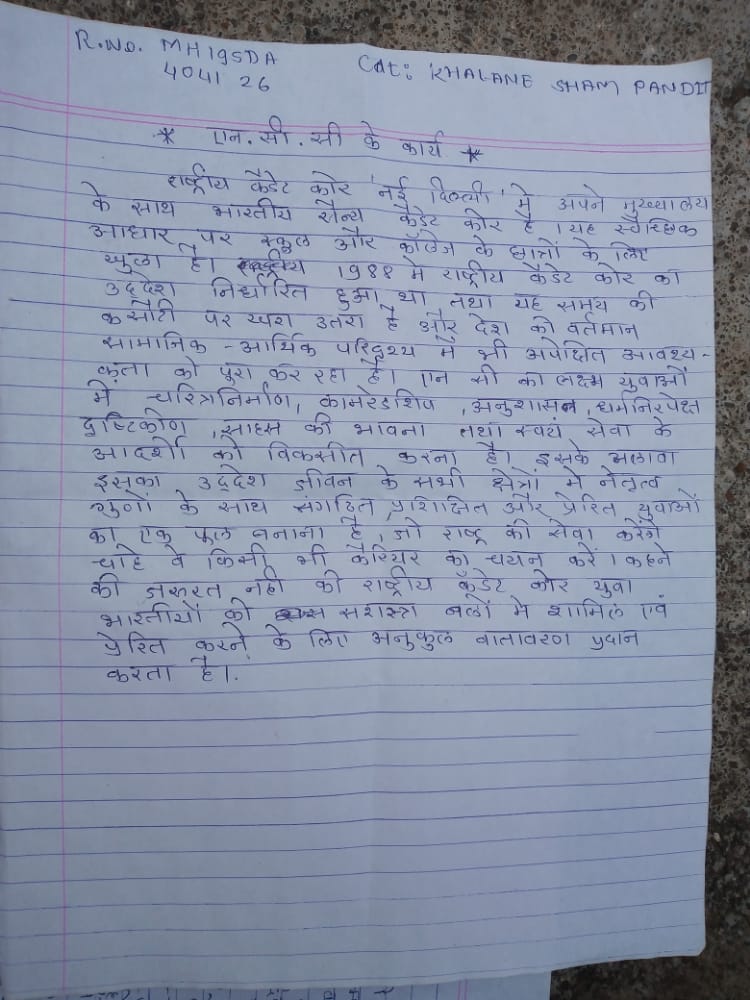 R.No. MH19SDA
404126
Cdt: KHALANE SHAM PANDIT
* एन.सी.सी के कार्य *
राष्ट्रीय कैडेट कोर 'नई दिल्ली' में अपने मुख्यालय
के साथ भारतीय सैन्य कैडेट कोर है। यह स्वैच्छिक
आधार पर स्कुल और कॉलेज के छात्रों के लिए
खुला है। 1988 मे राष्ट्रीय कैडेट कोर का
उद्देश निर्धारित हुआ था तथा यह समय की
कसौटी पर खरा उतरा है और देश की वर्तमान
सामाजिक - आर्थिक परिदृश्य में भी अपेक्षित आवश्य-
कता को पुरा कर रहा है। एन सी का लक्ष्म युवाओं
में चरित्रनिर्माण, कामरेडशिप, अनुशासन, धर्मनिरपेक्ष
दृष्टिकोण, साहस की भावना तथा स्वयं सेवा के
आदर्शो को विकसीत करना है। इसके अलावा
इसका उद्देश जीवन के सभी क्षेत्रों में नेतृत्व
गुणों के साथ संगठित, प्रशिक्षित और प्रेरित युवाओं
का एक पुल बनाना है, जो राष्ट्र की सेवा करेंगे
चाहे वे किसी भी कैरियर का चयन करें। कहने
की जरूरत नही की राष्ट्रीय कॅडेट कोर युवा
भारतीयों को सशस्त्रा बलों में शामिल एवं
प्रेरित करने के लिए अनुकुल वातावरण प्रदान
करता है।